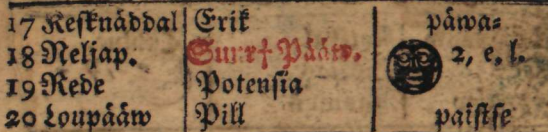 17 Kesknäddal Erik päwa=
18 Neljap. Suur† Pääw. 2, e. l.
19 Rede Potensia
20 Loupääw Pill paistse